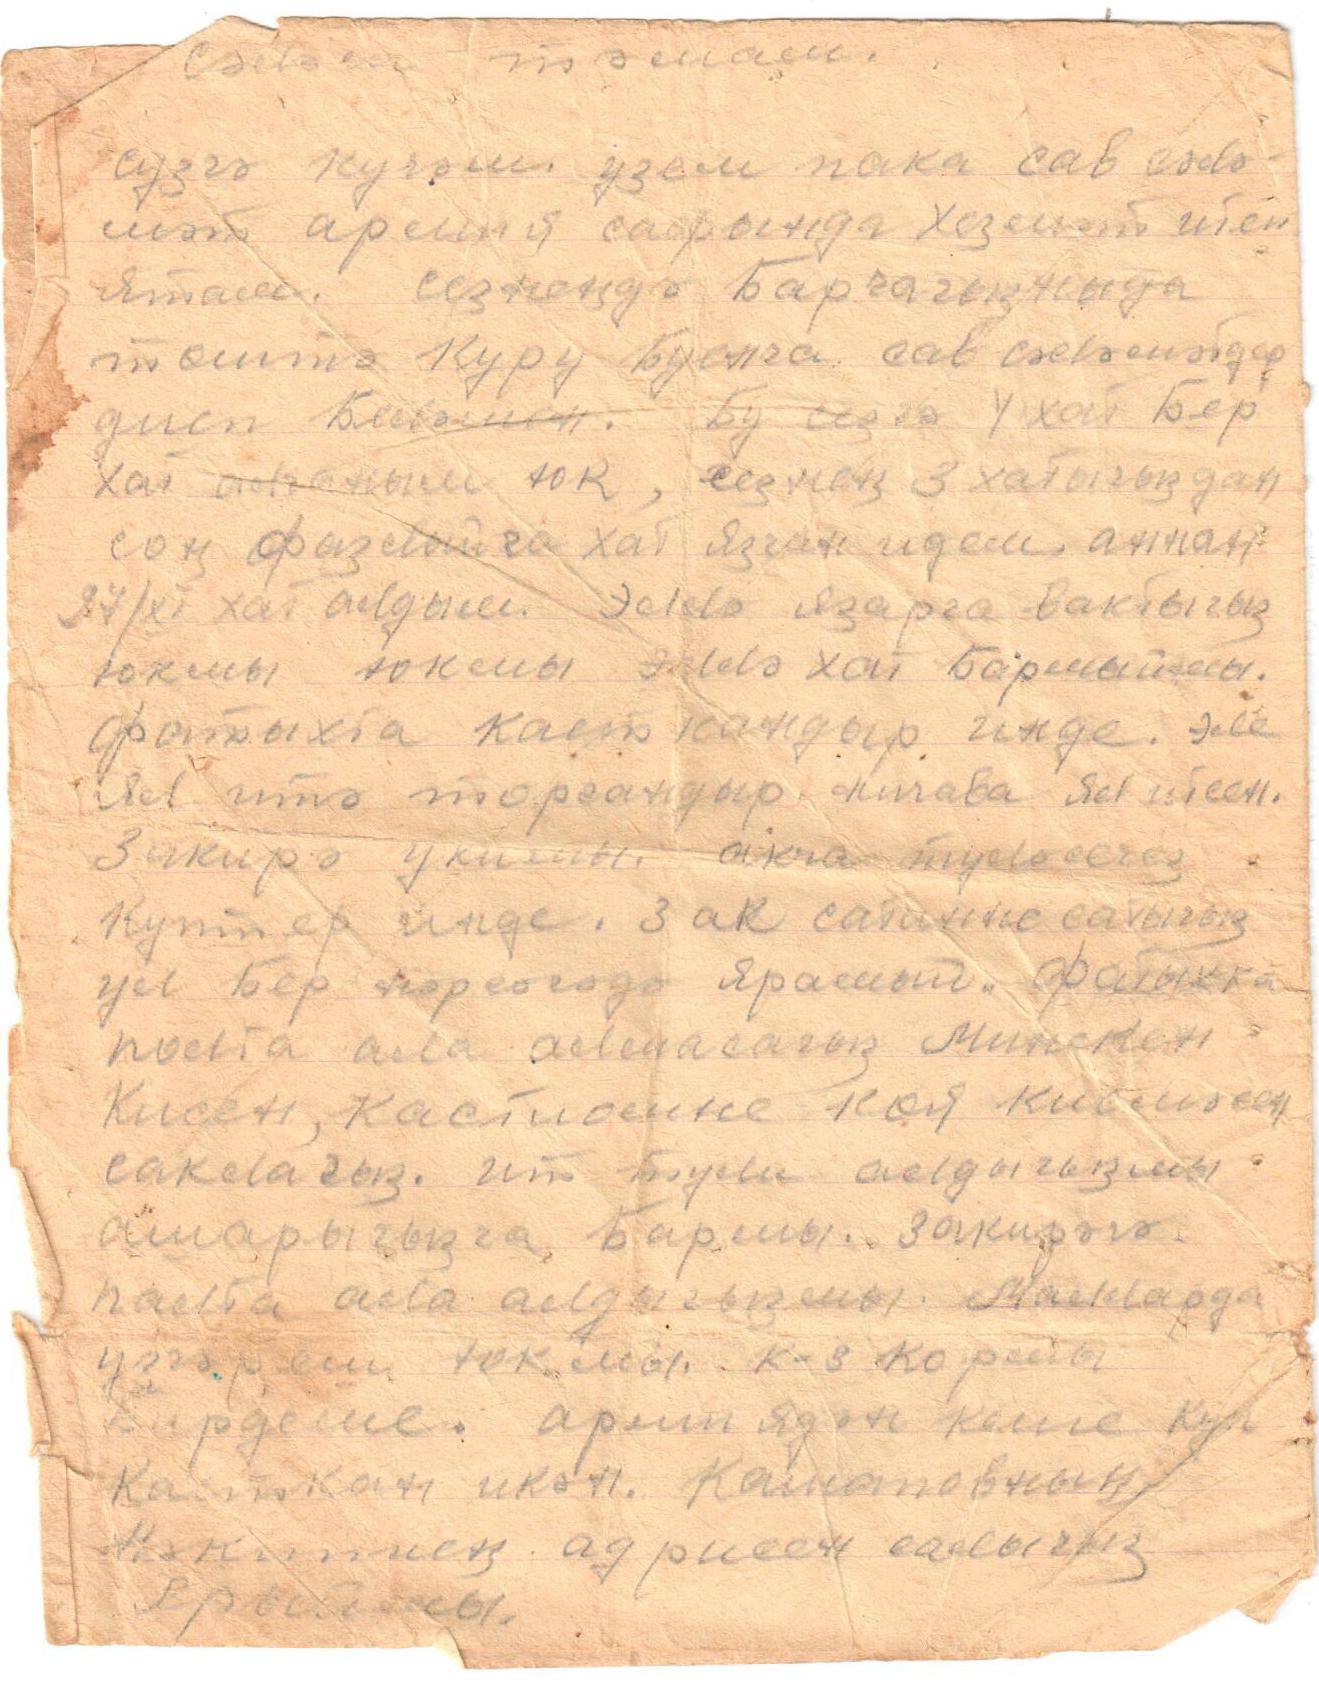 сәләм тәмам.
сүзгә кучәм. үзем пака сав сәлә-
мәт армия сафында хезмәт итеп
ятам. сезнеңдә барчагызныда
төштә куру буенча сав сәләмәтдер
дисп беләмен. бу сезгә 4 хат бер
хат алганым юк, сезнең 3 хатыгыздан
соң Фазлыйга хат язган идем. аннан
27/XI хат алдым. Әллә язарга вактыгыз
юкмы юкмы әллә хат бармыймы.
Фатыхта кайткандыр инде. эле
ял итә торгандыр ничава ял итсен.
Закирә укыймы. акча түләсегез
күптер инде. Зак сатинне сатыгыз
ул бер нәрсәгәдә ярамый. Фатыхка
полта ала алмасагыз Минекен
кисен, кастюмне кся килмәсен
саклагыз. ит тулы алдыгызмы
ашарыгызга бармы. Закирәгә
палта ала алдыгызмы. Малларда
үзгәреш юкмы. к-з кормы
бирдеме. армиядән кеше күп
кайткан икән. Каматовның
адрисен салыгыз
ярыймы.